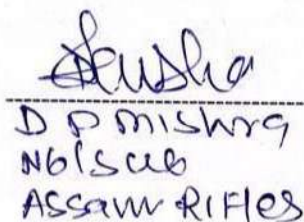 D P Mishra
Nb/Sub
Assam Rifles